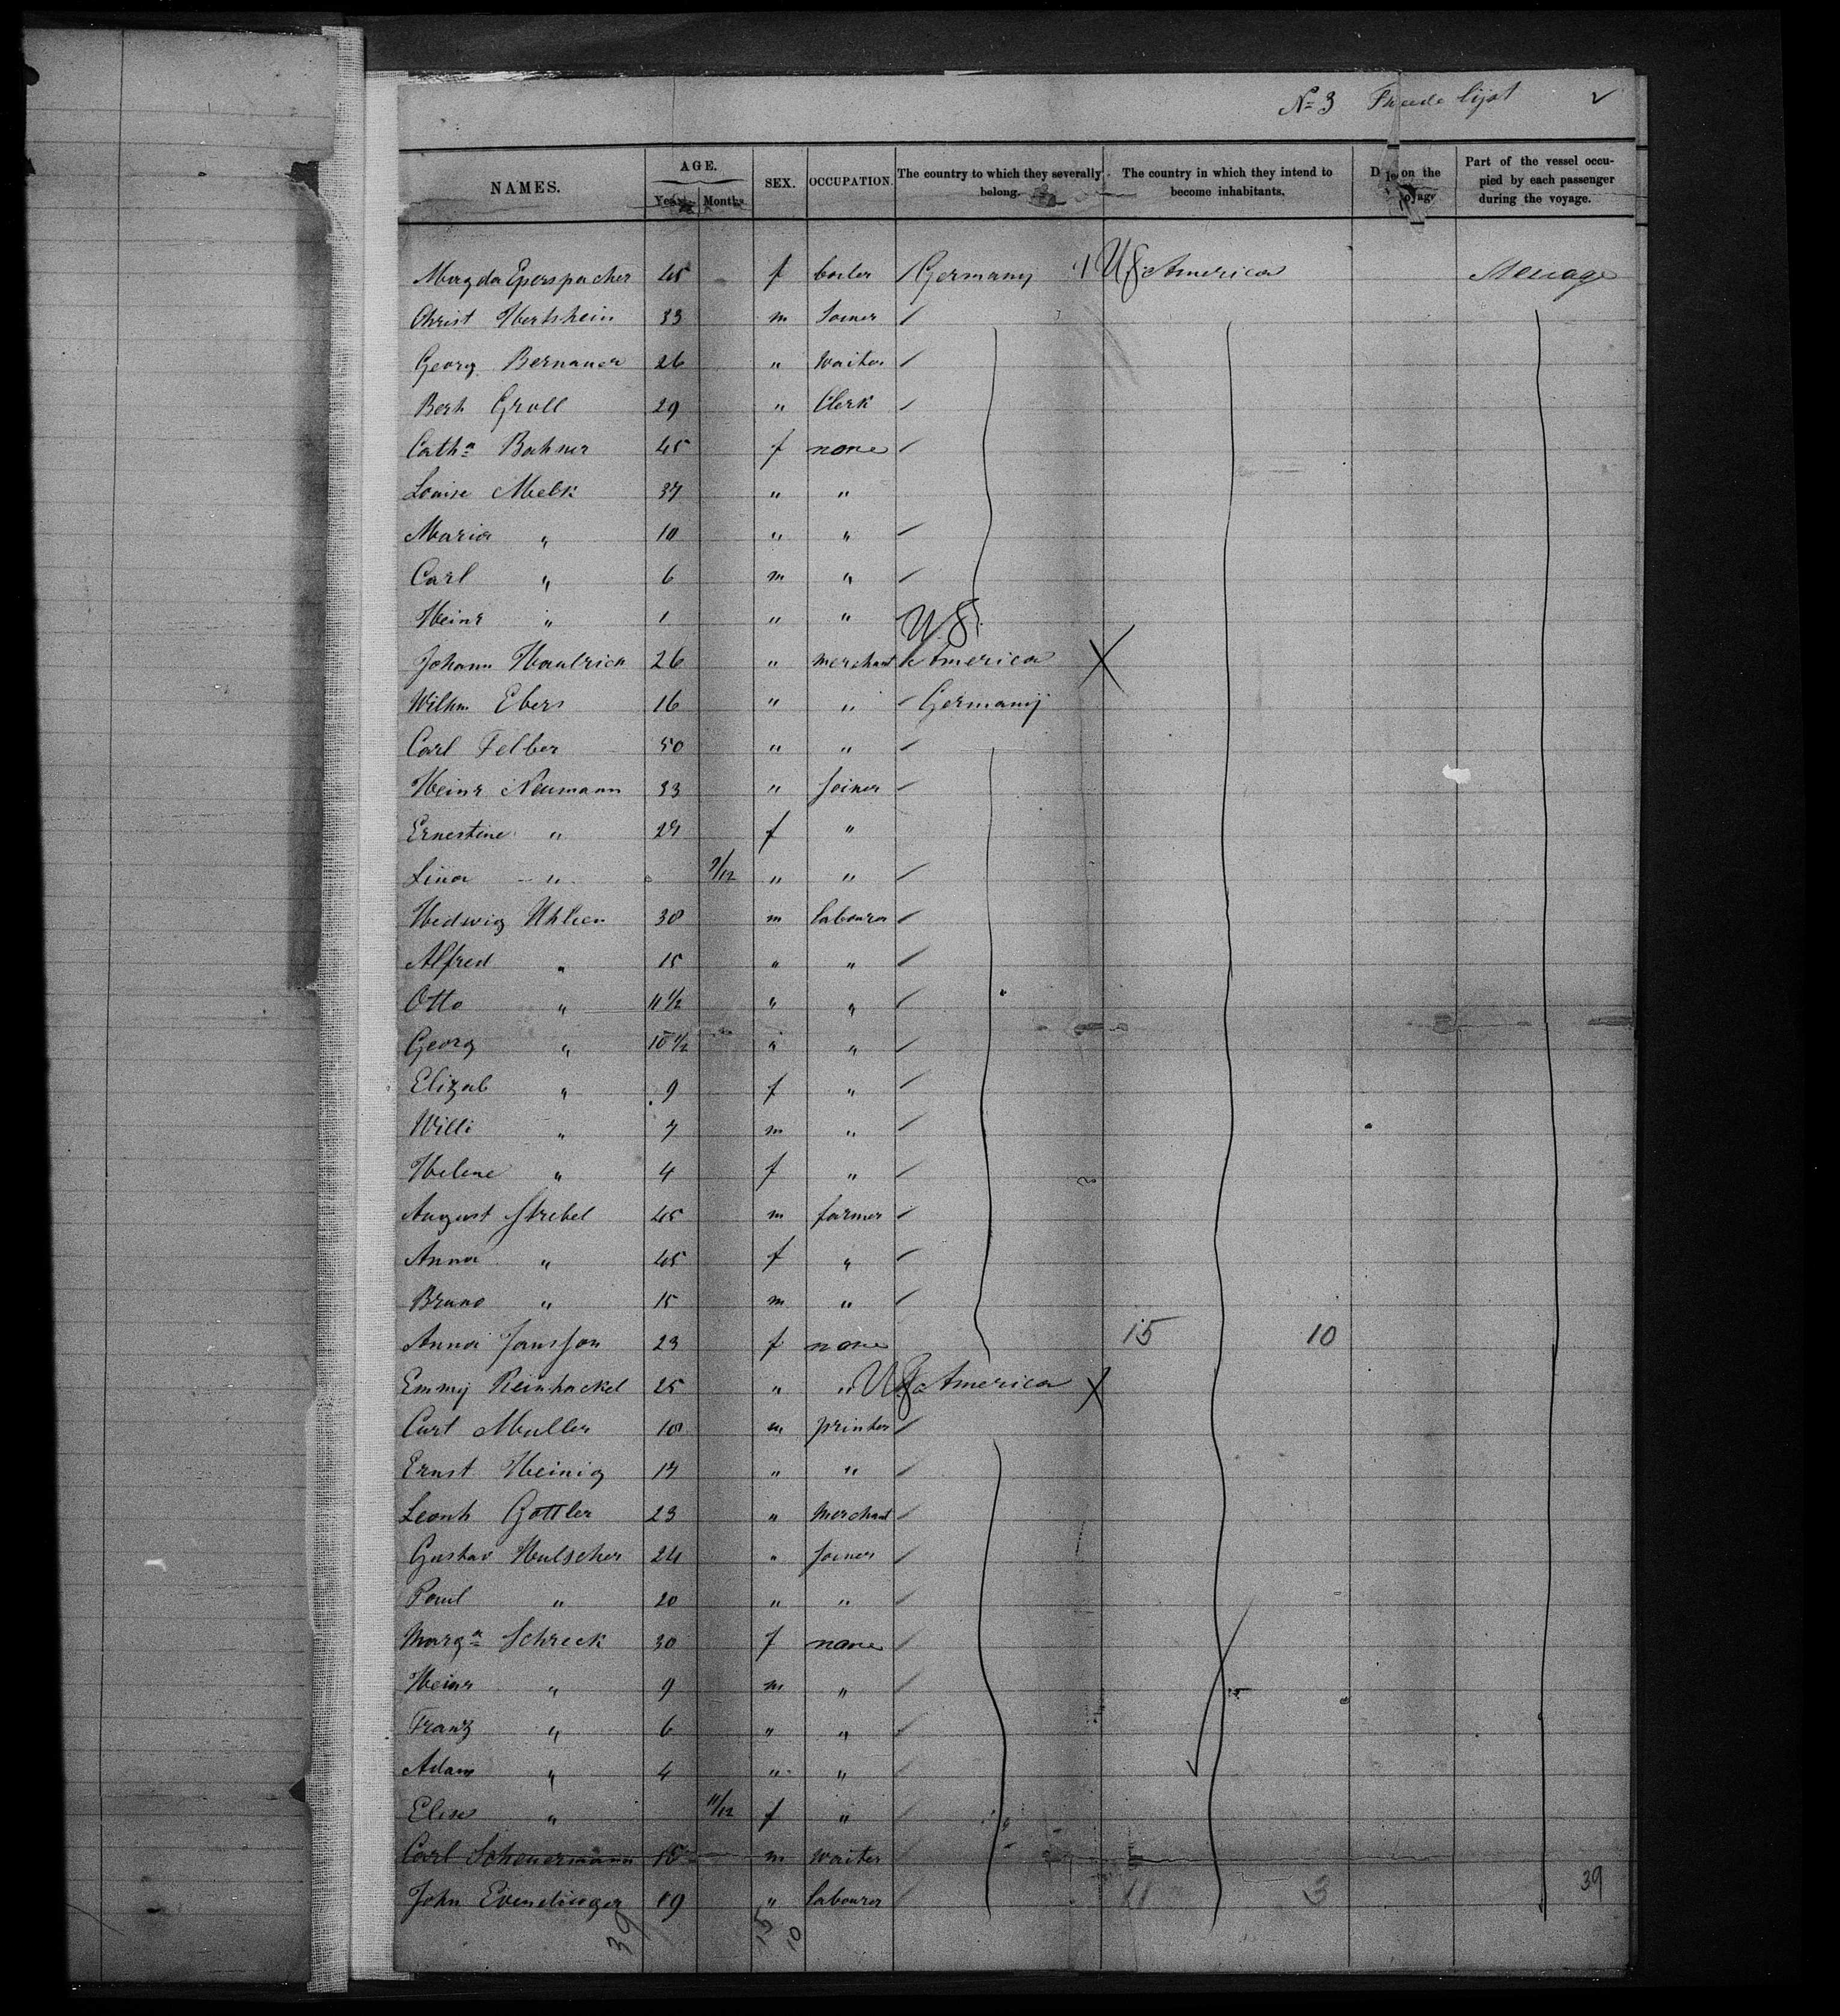 No 3 lijst
NAMES. AGE. SEX. OCCUPATION. The country to which they severally belong. The country in which they intend to become inhabitants. on the Part of the vessel occupied by each passenger during the voyage.
Years Months
Magda Eperspacher 45 f Germany U S America
Christ 33 m Joiner
Georg Bernauer 26 " waiter
Groll 29 " Clerk
Catha Bahner 45 f none
Louise Melk 37 " "
Maria " 10 " "
Carl " 6 m "
Heinr " 1 " "
U.S.
Johann 26 " merchant America
Wilhm Ebers 16 " " Germany
Carl Felber 50 " "
Heinr Neumann 33 " Joiner
Ernestine " 27 f "
Lina " 9/12 " "
Hedwig 38 m labourer
Alfred " 15 " "
Otto " 11 1/2 " "
Georg " 10 1/2 " "
Elizab " 9 f "
Willi " 7 m "
Helene " 4 f "
August Strebel 45 m farmer
Anna " 45 f "
Bruno " 15 m "
Anna Jansson 23 f none 15 10
Emmy Reinhackel 25 " " U S America
Curt Muller 18 m printer
Ernst Heinig 17 " "
Leonh Gottler 23 " Merchant
Gustav Hulscher 24 " Joiner
Paul " 20 " "
Marga Schreck 30 f none
Heinr " 9 m "
Franz " 6 " "
Adam " 4 " "
Elise " 11/12 f "
Carl Scheuermann m waiter
John 19 " labourer 11 3 39
39 15 10